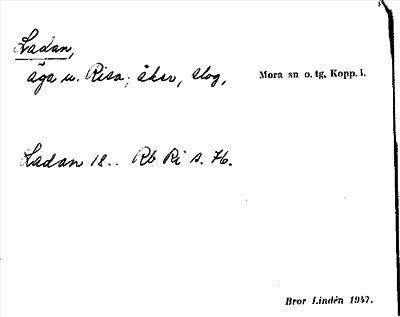 Ladan,
äga u. Risa; åker, slog,
Mora sn o. tg, Kopp. l.
Ladan 18.. Rb Ri s. 76.
Bror Lindén 1947.